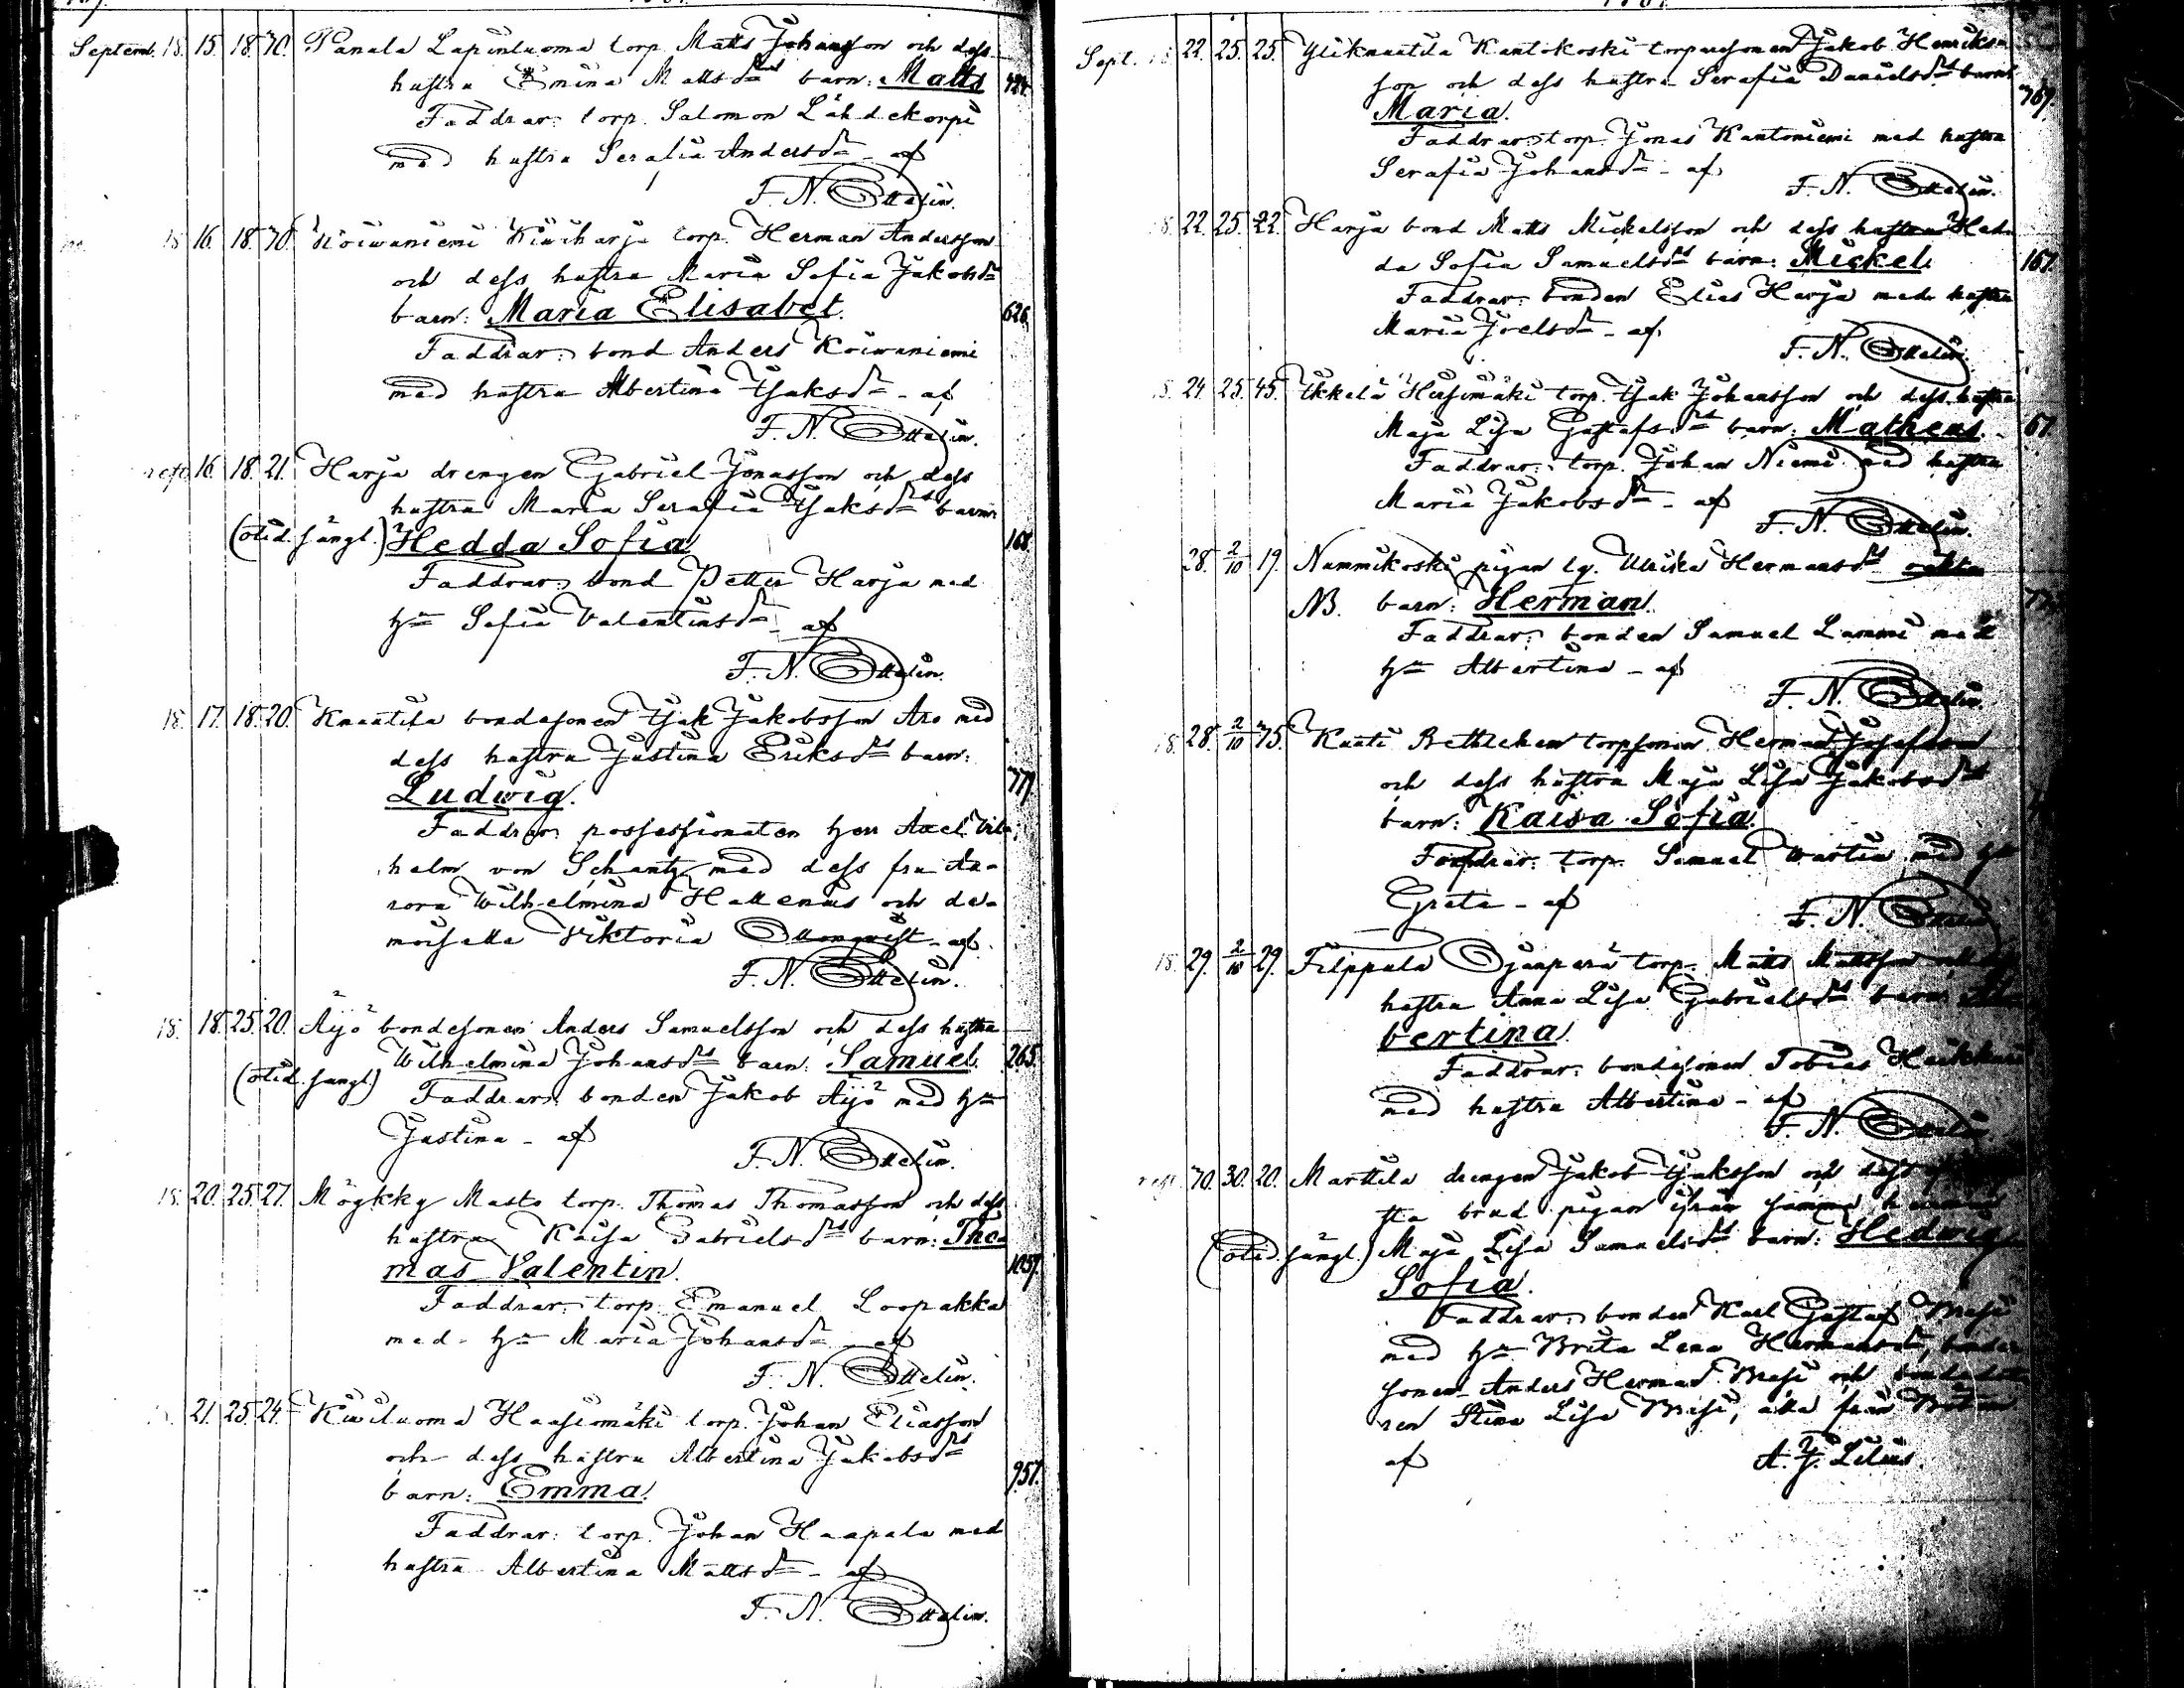 Septemb. 18. 15. 18. 70. Panala Lapinluoma torp. Matts Johansson och dess
hustru Emina Mattsdrs barn: Matts
Faddrar: torp. Salomon Lähdekorpi
med hustru Serafia Andersdr - af
F. N. Ottelin.
18. 16. 18. 70. Koiwuniemi Kiwiharju torp. Herman Andersson
och dess hustru Maria Sofia Jakobsdrs
barn: Maria Elisabet. 626.
Faddrar: bond Anders Koiwuniemi
med hustru Albertina Isaksdr - af
F. N. Ottelin.
16. 18. 21. Harju drengen Gabriel Jonasson och dess
hustru Maria Serafia Isaksdrs barn:
(otid. sängl.) Hedda Sofia 168.
Faddrar: bond Petter Harju med
hu Sofia Valentinsdr - af
F. N. Ottelin.
18. 17. 18. 20. Knuutila bondesonen Isak Jakobsson Aro med
dess hustru Justina Eriksdrs barn:
Ludwig. 779.
Faddrar: possessionaten herr Axel Vil-
helm von Schantz med dess fru Au-
rora Wilhelmina Hallenius och de-
moiselle Viktoria - af
F. N. Ottelin.
18. 18. 25. 20. Äijö bondesonen Anders Samuelsson och dess hustru
Wilhelmina Johansdrs barn: Samuel. 265.
(otid. sängl.) Faddrar: bonden Jakob Äijö med hu
Justina - af
F. N. Ottelin.
18. 20. 25. 27. Möykky Masto torp. Thomas Thomasson och dess
hustru Kaisa Gabrielsdrs barn: Tho-
mas Valentin. 1057.
Faddrar: torp. Emanuel Loopakka
med hu Maria Johansdr - af
F. N. Ottelin.
21. 25. 24. Kiwiluoma Haasiomäki torp. Johan Eliasson
och dess hustru Albertina Jakobsdrs
barn: Emma. 957.
Faddrar: torp. Johan Haapala med
hustru Albertina Mattsdr - af
F. N. Ottelin.
Sept. 18. 22. 25. 25. Yliknuutila Kantokoski torparesonen Jakob Henriks-
son och dess hustru Serafia Danielsdrs barn:
Maria. 769.
Faddrar: torp. Jonas Kantoniemi med hustru
Serafia Johansdr - af
F. N. Ottelin.
18. 22. 25. 22. Harju bond Matts Mickelsson och dess hustru Hed-
da Sofia Samuelsdrs barn: Mickel. 167.
Faddrar: bonden Elias Harju med hustru
Maria Joelsdr - af
F. N. Ottelin.
8. 24. 25. 45. Ikkelä Heisimäki torp. Isak Johansson och dess hustru
Maja Lisa Gustafsdrs barn: Matheus. 67.
Faddrar: torp. Johan Niemi med hustru
Maria Jakobsdr - af
F. N. Ottelin.
28. 2/10 19. Nummikoski pigan lg. Ulrika Hermansdrs oäkta
NB. barn: Herman.
Faddrar: bonden Samuel Lammi med
hu Albertina - af
F. N. Ottelin.
18. 28. 2/10 75. Kuuti Bethlehem torpsonen Herman Josefsson
och dess hustru Maja Lisa Jakobsdrs
barn: Kaisa Sofia.
Faddrar: torp. Samuel Wartia med hu
Greta - af
F. N. Ottelin.
18. 29. 2/10 29. Filppula Ojanperä torp. Matts Mattsson och dess
hustru Anna Lisa Gabrielsdrs barn: Al-
bertina.
Faddrar: bondesonen Tobias Heikkuri
med hustru Albertina - af
F. N. Ottelin.
70. 30. 20. Marttila drengen Jakob Isaksson och dess
sta brud pigan ifrån samma hemman
(otid. sängl.) Maja Lisa Samuelsdrs barn: Hedwig
Sofia.
Faddrar: bonden Karl Gustaf Brasi
med hu Brita Lena Hermansdr, bonde-
sonen Anders Herman Brasi och bondedott-
ren Stina Lisa Brasi, alla från
af A. J. Lilius.